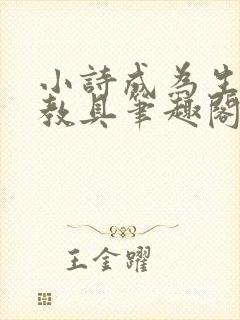 小詩成為生
教具筆趣閣
王金躍